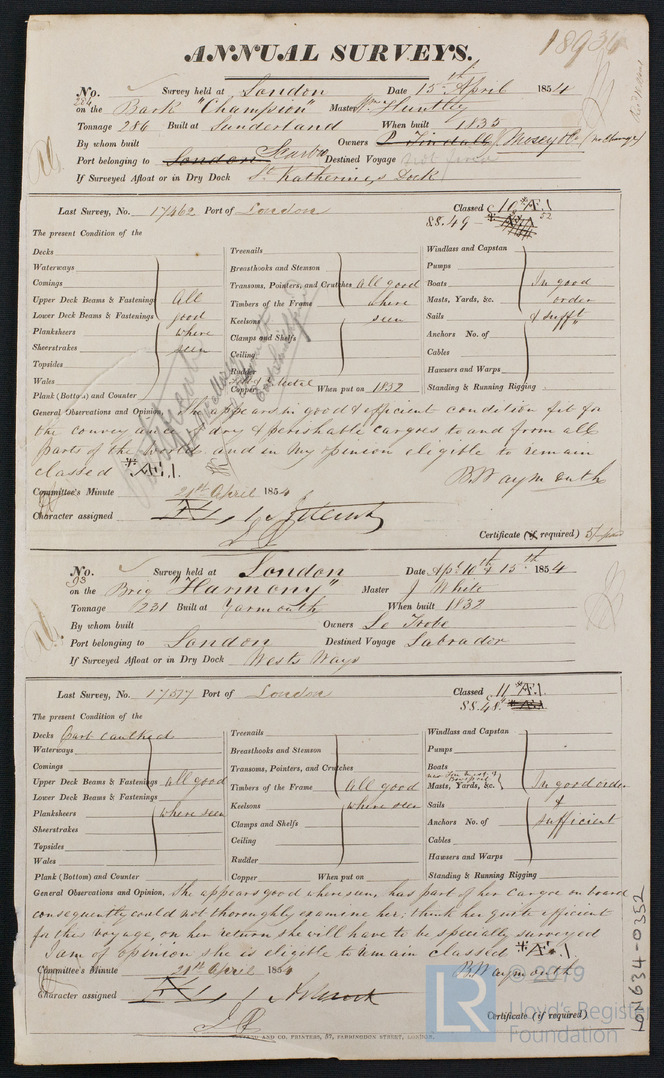 ANNUAL SURVEYS.
No. 284 Survey held at London Date 15th April 1854
on the Bark "Champion" Master Wm Huntley
Tonnage 286 Built at Sunderland When built 1835
By whom built Owners Mosey & Co. (no change)
Port belonging to London Scarbro Destined Voyage
If Surveyed Afloat or in Dry Dock St Katherines Dock
Last Survey, No. 17462 Port of London Classed
88.49 52
The present Condition of the
Decks
Waterways
Comings
Upper Deck Beams & Fastenings All
Lower Deck Beams & Fastenings good
Planksheers where
Sheerstrakes seen
Topsides
Wales
Plank (Bottom) and Counter
Treenails
Breasthooks and Stemson
Transoms, Pointers, and Crutches all good
Timbers of the Frame where
Keelsons seen
Clamps and Shelfs
Ceiling
Rudder
Copper When put on 1852
Windlass and Capstan
Pumps
Boats In good
Masts, Yards, &c. order
Sails & sufft
Anchors No. of
Cables
Hawsers and Warps
Standing & Running Rigging
General Observations and Opinion, She appears in good & efficient condition fit for
the conveyance of dry & perishable cargoes to and from all
parts of the world and in my opinion eligible to remain
classed *Æ.1.
B Waymouth
Committee's Minute 21st April 1854
Character assigned
Certificate (if required)
No. 93 Survey held at London Date Apl 10th & 15th 1854
on the Brig "Harmony" Master J White
Tonnage 231 Built at Yarmouth When built 1832
By whom built Owners La Trobe
Port belonging to London Destined Voyage Labrador
If Surveyed Afloat or in Dry Dock Wests Ways
Last Survey, No. 17577 Port of London Classed 11 *Æ.1.
88.48
The present Condition of the
Decks Part caulked
Waterways
Comings
Upper Deck Beams & Fastenings all good
Lower Deck Beams & Fastenings
Planksheers where seen
Sheerstrakes
Topsides
Wales
Plank (Bottom) and Counter
Treenails
Breasthooks and Stemson
Transoms, Pointers, and Crutches
Timbers of the Frame All good
Keelsons where seen
Clamps and Shelfs
Ceiling
Rudder
Copper When put on
Windlass and Capstan
Pumps
Boats
Bowsprit
Masts, Yards, &c. In good order
Sails &
Anchors No. of sufficient
Cables
Hawsers and Warps
Standing & Running Rigging
General Observations and Opinion, She appears good where seen, has part of her cargoe on board
consequently could not thoroughly examine her; think her quite efficient
for the voyage, on her return she will have to be specially surveyed
I am of opinion she is eligible to remain classed *Æ.1
B Waymouth
Committee's Minute 21st April 1854
Character assigned
Certificate (if required)
AND CO. PRINTERS, 57, FARRINGDON STREET, LONDON.
LON634-0352
LR
© 2019
Lloyd's Register
Foundation